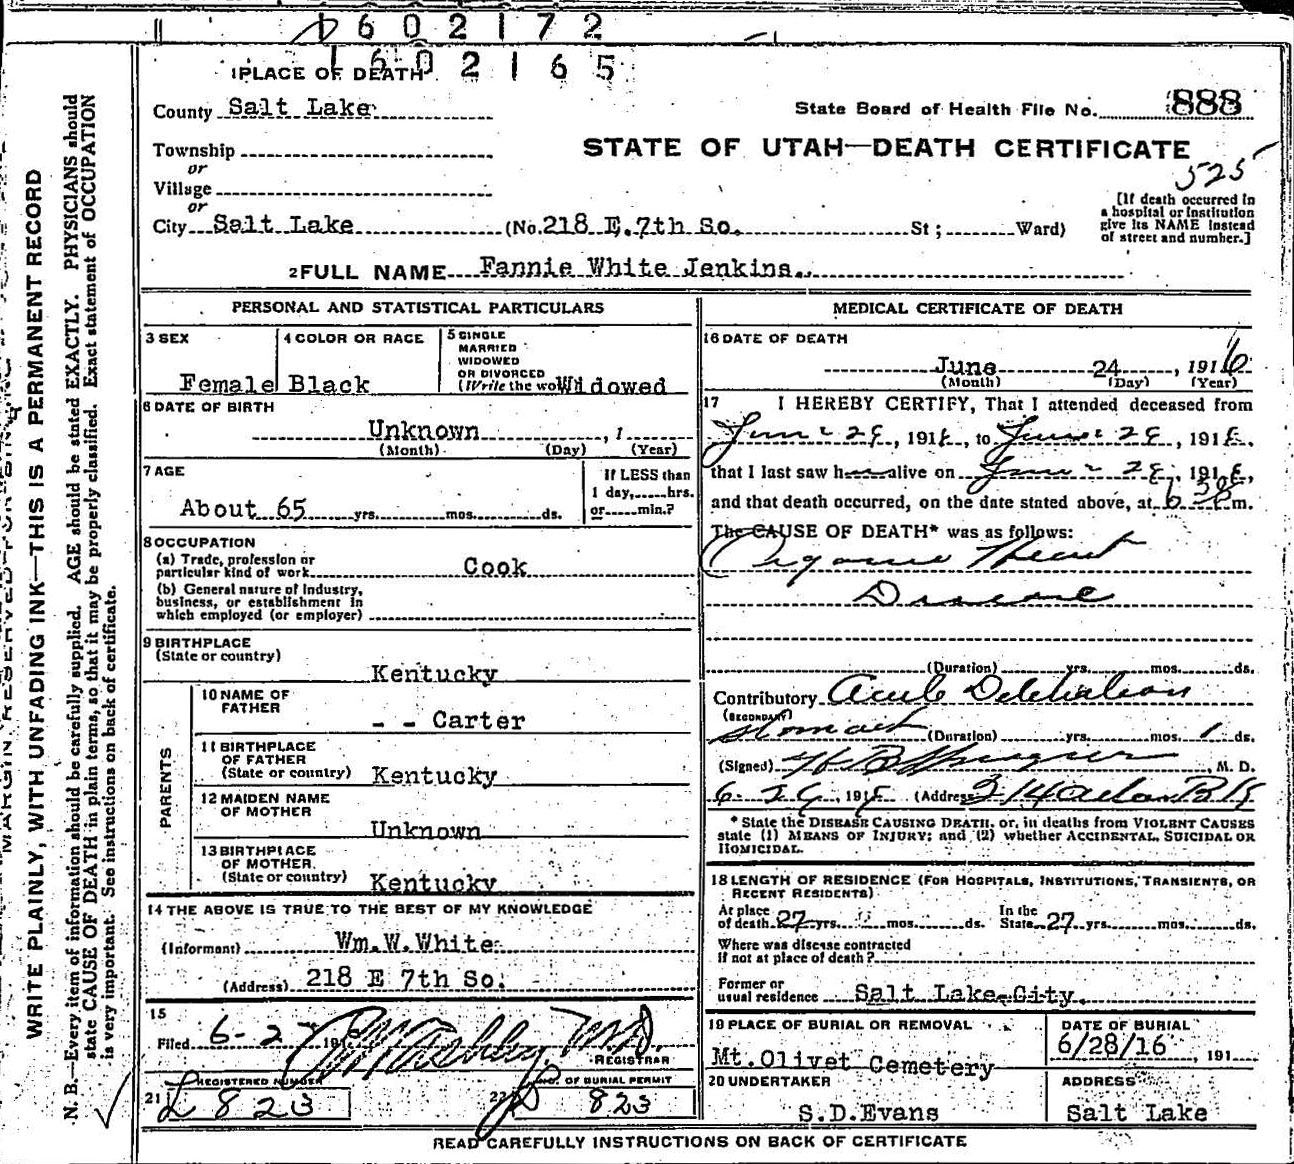 1602172
1602165
1 PLACE OF DEATH
County Salt Lake
State Board of Health File No. 888
Township
or
STATE OF UTAH—DEATH CERTIFICATE
525
Village
or
City Salt Lake (No. 218 E. 7th So. St; Ward)
[If death occurred in
a hospital or institution
give its NAME instead
of street and number.]
2 FULL NAME Fannie White Jenkins.
PERSONAL AND STATISTICAL PARTICULARS
3 SEX
Female
4 COLOR OR RACE
Black
5 SINGLE
MARRIED
WIDOWED
OR DIVORCED
(Write the wo Widowed
6 DATE OF BIRTH
Unknown , 1
(Month) (Day) (Year)
7 AGE
About 65 yrs. mos. ds.
If LESS than
1 day, hrs.
or min.?
8 OCCUPATION
(a) Trade, profession or
particular kind of work Cook
(b) General nature of Industry,
business, or establishment in
which employed (or employer)
9 BIRTHPLACE
(State or country)
Kentucky
PARENTS
10 NAME OF
FATHER
- - Carter
11 BIRTHPLACE
OF FATHER
(State or country) Kentucky
12 MAIDEN NAME
OF MOTHER
Unknown
13 BIRTHPLACE
OF MOTHER
(State or country) Kentucky
14 THE ABOVE IS TRUE TO THE BEST OF MY KNOWLEDGE
(Informant) Wm. W. White
(Address) 218 E 7th So.
15
Filed 6-27 191
M.D.
REGISTRAR
REGISTERED NUMBER
21 L 823
NO. OF BURIAL PERMIT
22 D 823
MEDICAL CERTIFICATE OF DEATH
16 DATE OF DEATH
June 24 , 1916
(Month) (Day) (Year)
17 I HEREBY CERTIFY, That I attended deceased from
June , 191 , to June , 191 ,
that I last saw h alive on June , 191 ,
and that death occurred, on the date stated above, at 6 30 m.
The CAUSE OF DEATH* was as follows:
Organic Heart
Disease
(Duration) yrs. mos. ds.
Contributory Acute Dilatation
(SECONDARY)
stomach (Duration) yrs. mos. 1 ds.
(Signed) , M. D.
6- 191 (Address)
* State the DISEASE CAUSING DEATH, or, in deaths from VIOLENT CAUSES
state (1) MEANS OF INJURY; and (2) whether ACCIDENTAL, SUICIDAL OR
HOMICIDAL.
18 LENGTH OF RESIDENCE (FOR HOSPITALS, INSTITUTIONS, TRANSIENTS, OR
RECENT RESIDENTS)
At place
of death 27 yrs. mos. ds. In the
State 27 yrs. mos. ds.
Where was disease contracted
if not at place of death?
Former or
usual residence Salt Lake City.
19 PLACE OF BURIAL OR REMOVAL
Mt. Olivet Cemetery
DATE OF BURIAL
6/28/16 , 191
20 UNDERTAKER
S.D.Evans
ADDRESS
Salt Lake
READ CAREFULLY INSTRUCTIONS ON BACK OF CERTIFICATE
MARGIN RESERVED FOR BINDING
WRITE PLAINLY, WITH UNFADING INK—THIS IS A PERMANENT RECORD
N. B.—Every item of information should be carefully supplied. AGE should be stated EXACTLY. PHYSICIANS should
state CAUSE OF DEATH in plain terms, so that it may be properly classified. Exact statement of OCCUPATION
is very important. See instructions on back of certificate.